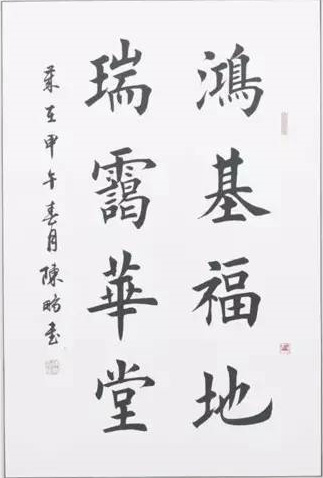 鴻基福地
瑞靄華堂
歲在甲午春月陳